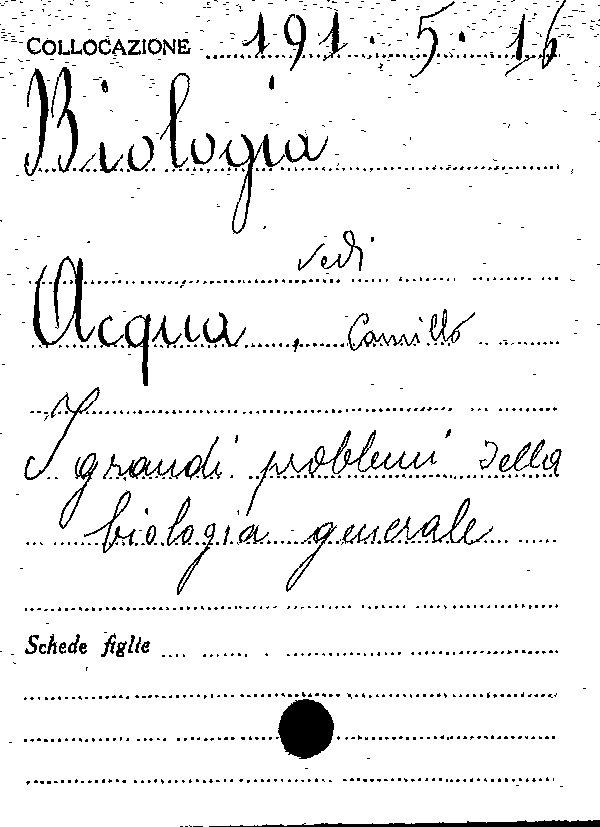 COLLOCAZIONE 191.5.16
Biologia
vedi
Acqua, Camillo
I grandi problemi della
biologia generale
Schede figlie